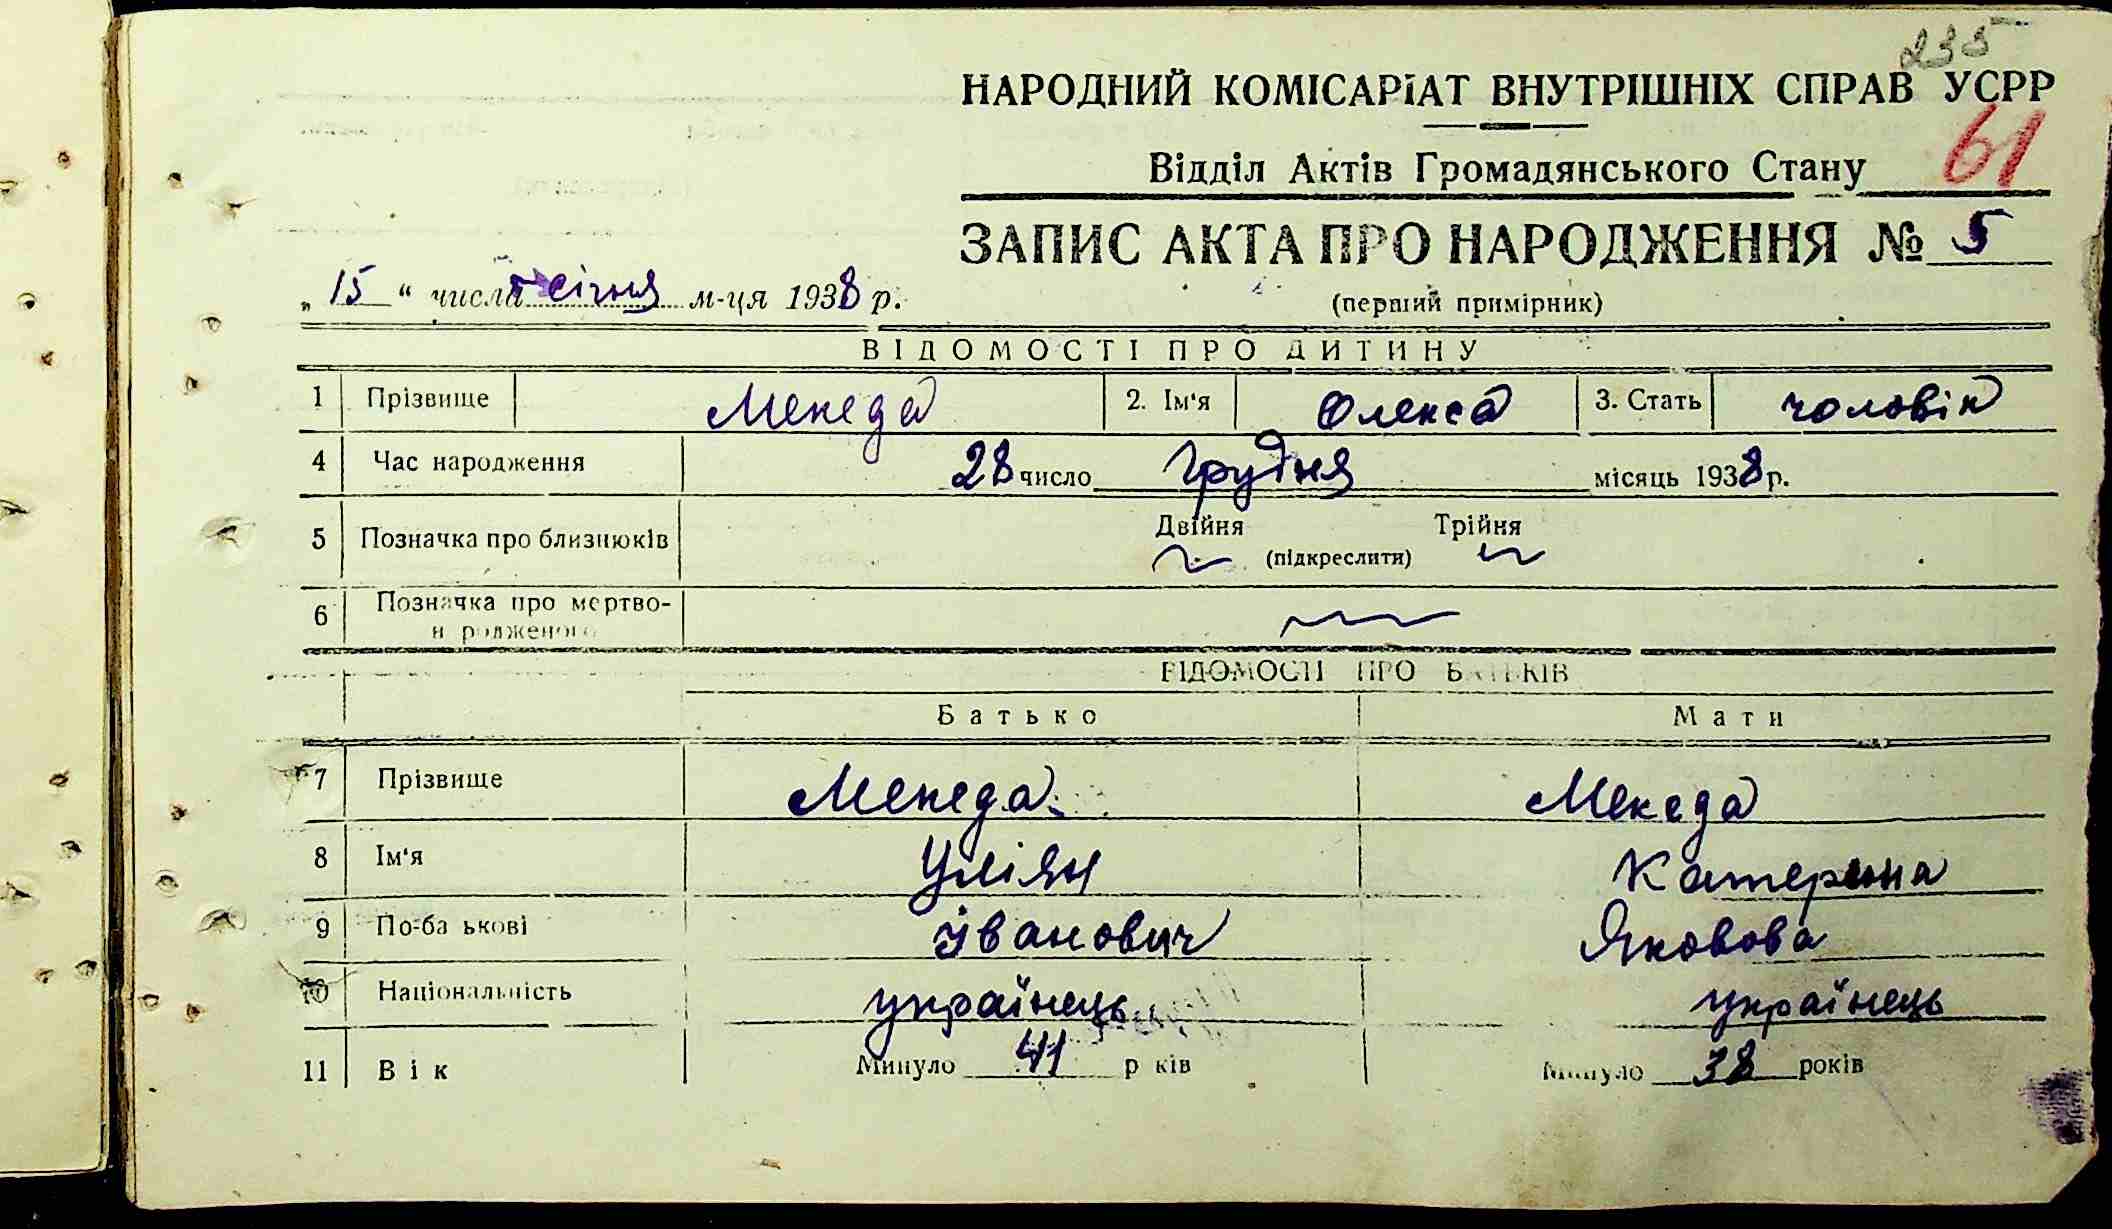 235
НАРОДНИЙ КОМІСАРІАТ ВНУТРІШНІХ СПРАВ УСРР
61
Відділ Актів Громадянського Стану
ЗАПИС АКТА ПРО НАРОДЖЕННЯ № 5
„ 15 “ числа січня м-ця 1938 р.
(перший примірник)
ВІДОМОСТІ ПРО ДИТИНУ
1 Прізвище Мекеда 2. Ім'я Олекса 3. Стать чоловік
4 Час народження 28 число Грудня місяць 1938 р.
5 Позначка про близнюків Двійня Трійня
(підкреслити)
6 Позначка про мертво-
н родженого
ВІДОМОСТІ ПРО БАТЬКІВ
Батько Мати
7 Прізвище Мекеда Мекеда
8 Ім'я Уліян Катерина
9 По-ба ькові Іванович Яковова
10 Національність українець українець
11 Вік Минуло 41 р ків Минуло 38 років